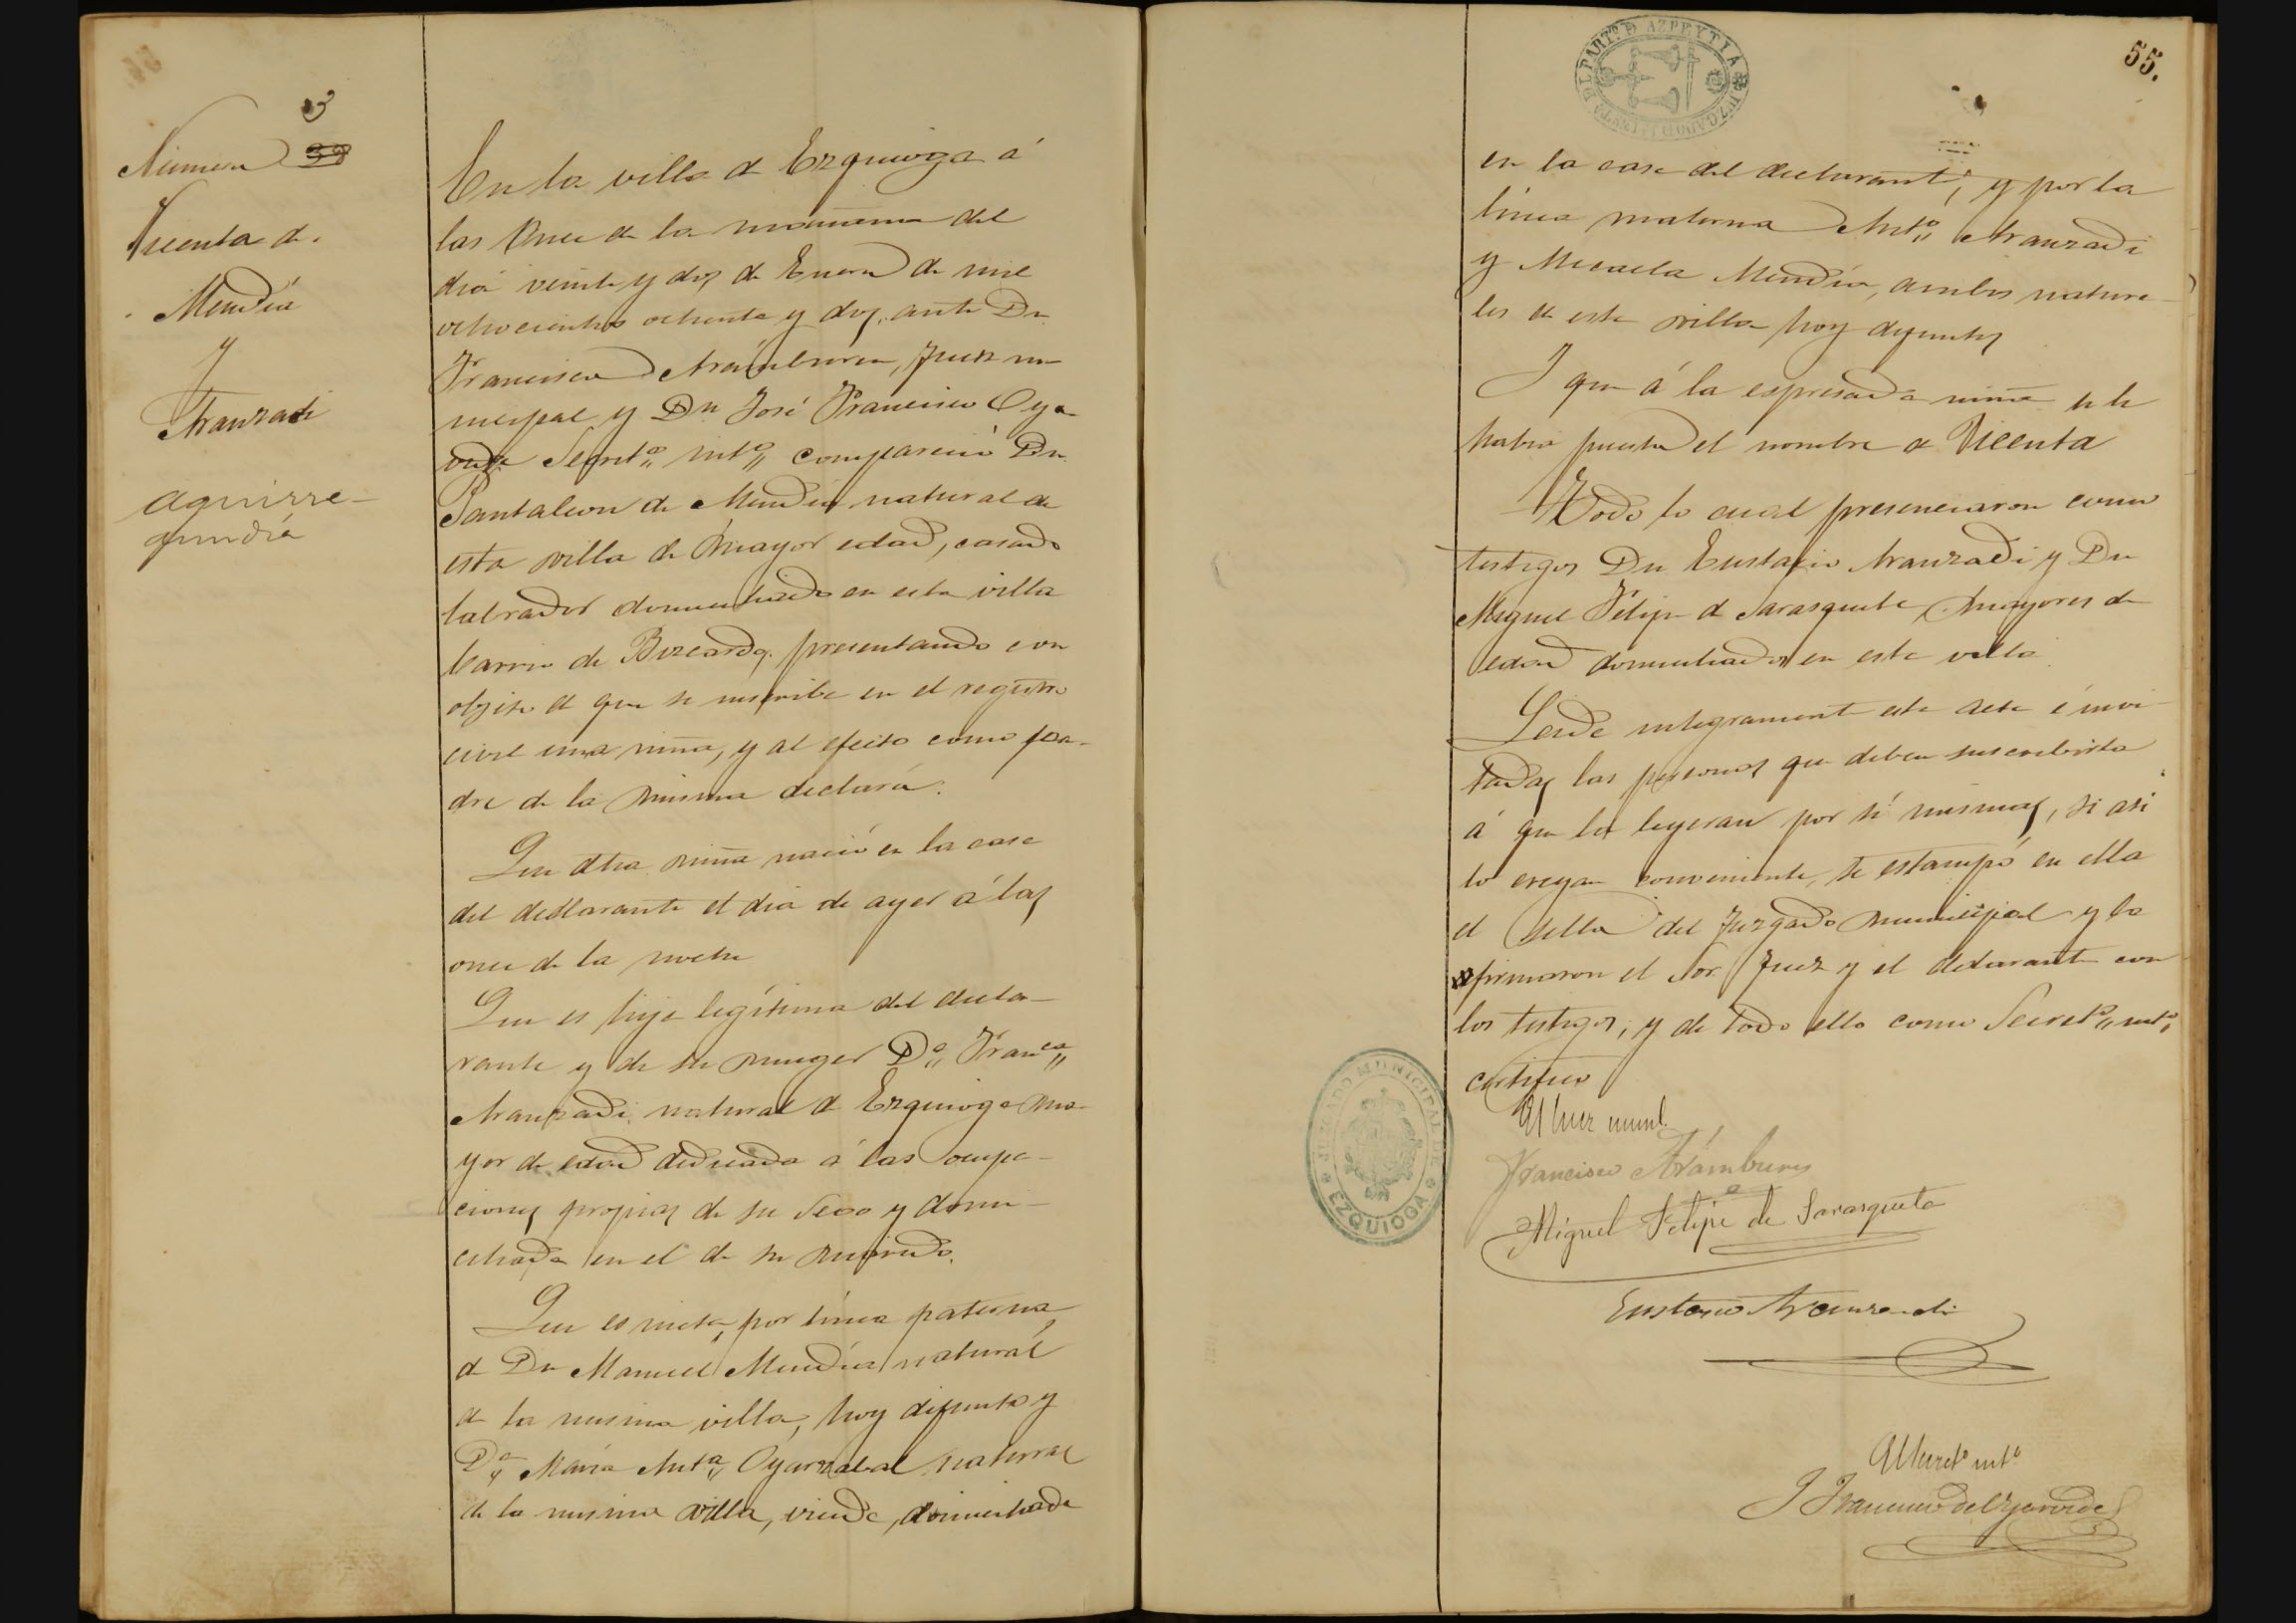 3
Número 38
Vicenta de
Mendia
y
Aranzadi
Aguirre-
gundia
En la villa de Ezquioga á
las once de la mañana del
dia veinte y dos de Enero de mil
ochocientos ochenta y dos, ante Dn
Francisco Arámburu, Juez mu
nicipal y Dn José Francisco Oya
Secret.º int.º compareció Dn
Pantaleon de Mendia natural de
esta villa de mayor edad, casado
labrador domiciliado en esta villa
barrio de presentando con
objeto de que se inscriba en el registro
civil una niña, y al efecto como pa-
dre de la misma declará.
Que dha niña nació en la casa
del declarante el dia de ayer á las
once de la noche
Que es hija legítima del decla-
rante y de su muger D.ª Fran.ca
Aranzadi natural de Ezquioga ma-
yor de edad dedicada á las ocupa-
ciones propias de su sexo y domi-
ciliada en el de su marido.
Que es nieta, por línea paterna,
de Dn Manuel Mendia natural
de la misma villa, hoy difunto y
D.ª María Ant.ª Oyarzabal natural
de la misma villa, viuda, domiciliada
55.
JUZGADO DE 1ª INSTA DEL PARTº DE AZPEYTIA
en la casa del declarante, y por la
línea materna Ant.º Aranzadi
y Micaela Mendia, ambos natura-
les de esta villa hoy difuntos
I que á la espresada niña se le
habia puesto el nombre de Vicenta
Todo lo cual presenciaron como
testigos Dn Eustasio Aranzadi y Dn
Miguel Felipe de Sarasqueta, mayores de
edad domiciliados en esta villa.
Leida integramente esta acta é invi
tadas las personas que deben suscribirla
á que la leyeran por sí mismas, si asi
lo creyan conveniente, se estampó en ella
el sello del Juzgado municipal y la
firmaron el Sor. Juez y el declarante con
los testigos, y de todo ello como Secret.º int.º
certifico
El Juez munl.
Francisco Arámburu
Miguel Felipe de Sarasqueta
JUZGADO MUNICIPAL DE EZQUIOGA
Eustasio Aranzadi
El Secret.º int.º
J Francisco de